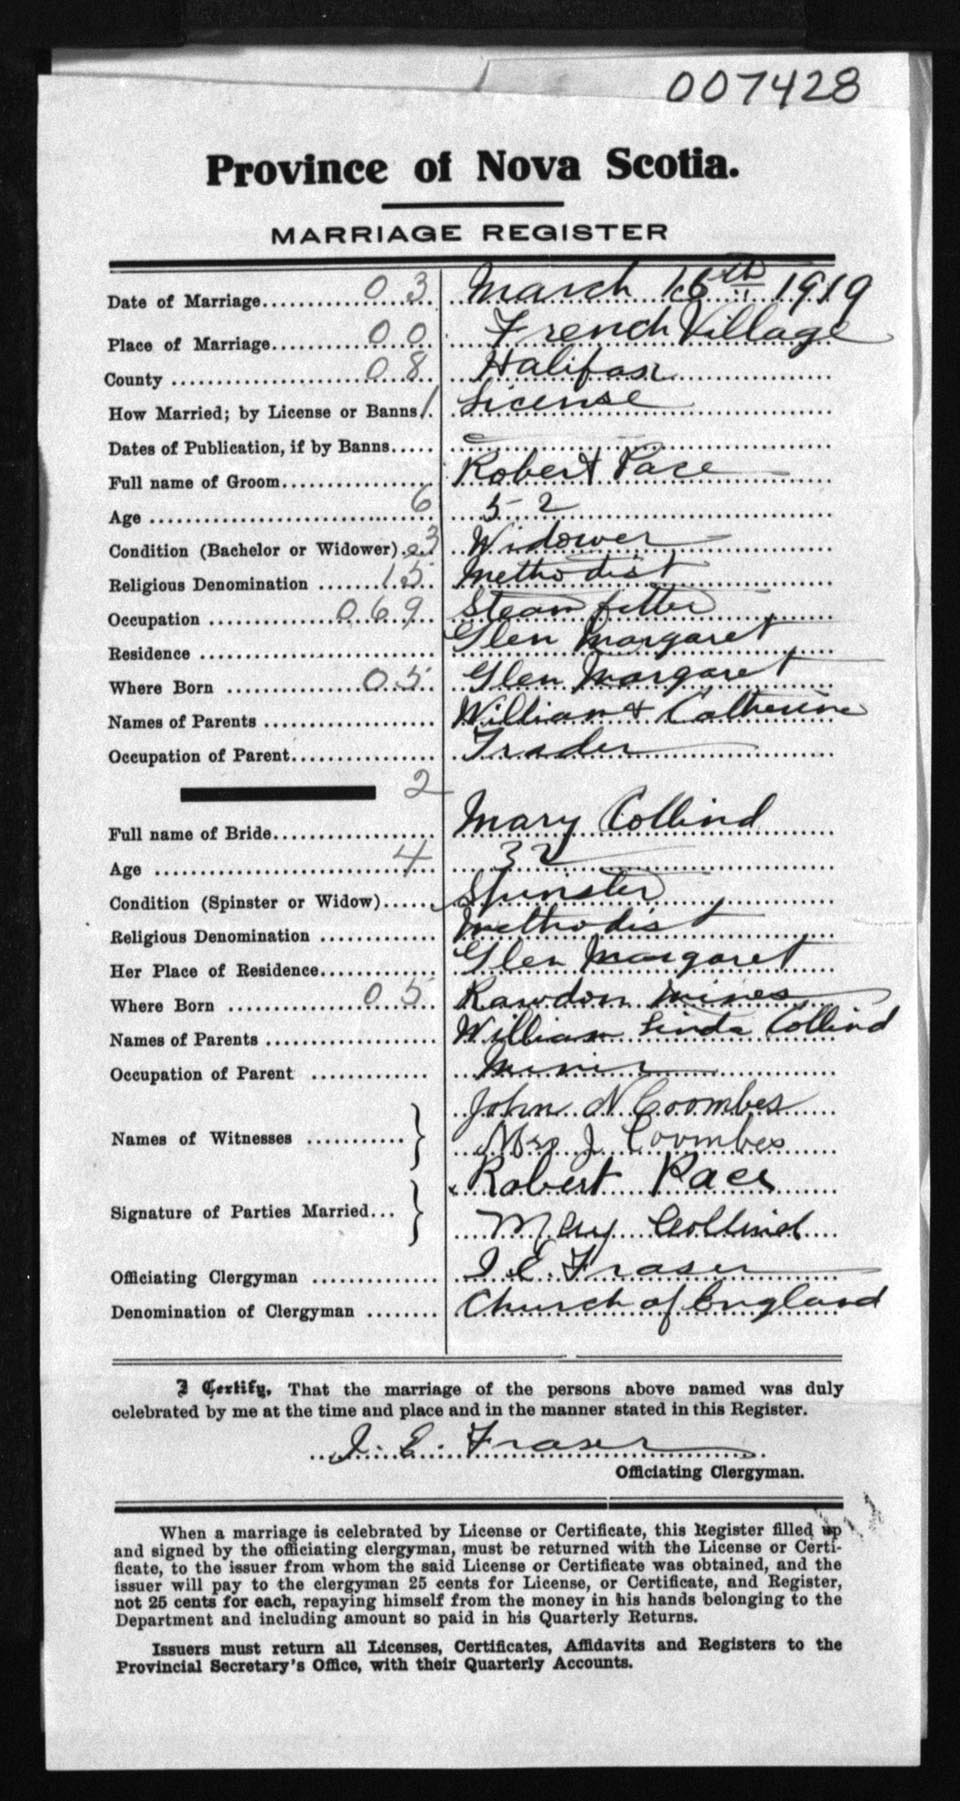 007428
Province of Nova Scotia.
MARRIAGE REGISTER
Date of Marriage 03 March 16th 1919
Place of Marriage 00 French Village
County 08 Halifax
How Married; by License or Banns 1 License
Dates of Publication, if by Banns
Full name of Groom Robert Pace
Age 6 52
Condition (Bachelor or Widower) 3 Widower
Religious Denomination 15 Methodist
Occupation 069 Steam fitter
Residence Glen Margaret
Where Born 05 Glen Margaret
Names of Parents William & Catherine
Occupation of Parent Trader
2
Full name of Bride Mary Collind
Age 4 32
Condition (Spinster or Widow) Spinster
Religious Denomination Methodist
Her Place of Residence Glen Margaret
Where Born 05 Rawdon Mines
Names of Parents William Linda Collind
Occupation of Parent Minir
Names of Witnesses John N Coombes
Mrs J. Coombes
Signature of Parties Married... Robert Pace
May Collind
Officiating Clergyman I E Fraser
Denomination of Clergyman Church of England
I Certify, That the marriage of the persons above named was duly
celebrated by me at the time and place and in the manner stated in this Register.
I. E. Fraser
Officiating Clergyman.
When a marriage is celebrated by License or Certificate, this Register filled up
and signed by the officiating clergyman, must be returned with the License or Certi-
ficate, to the issuer from whom the said License or Certificate was obtained, and the
issuer will pay to the clergyman 25 cents for License, or Certificate, and Register,
not 25 cents for each, repaying himself from the money in his hands belonging to the
Department and including amount so paid in his Quarterly Returns.
Issuers must return all Licenses, Certificates, Affidavits and Registers to the
Provincial Secretary's Office, with their Quarterly Accounts.